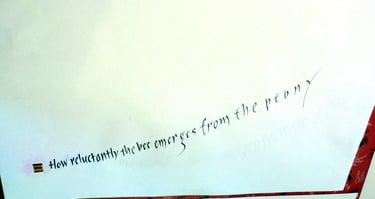 How reluctantly the bee emerges from the peony